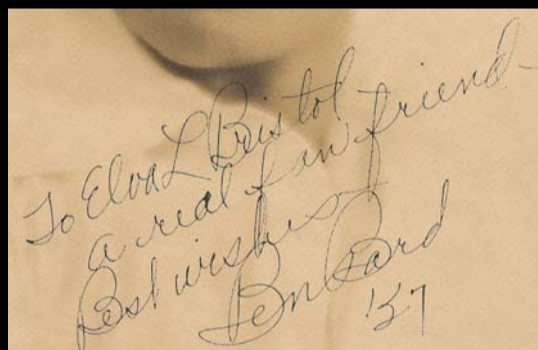 To Elva L Bristol
a real fan friend-
Best wishes
Ben Bard
'37